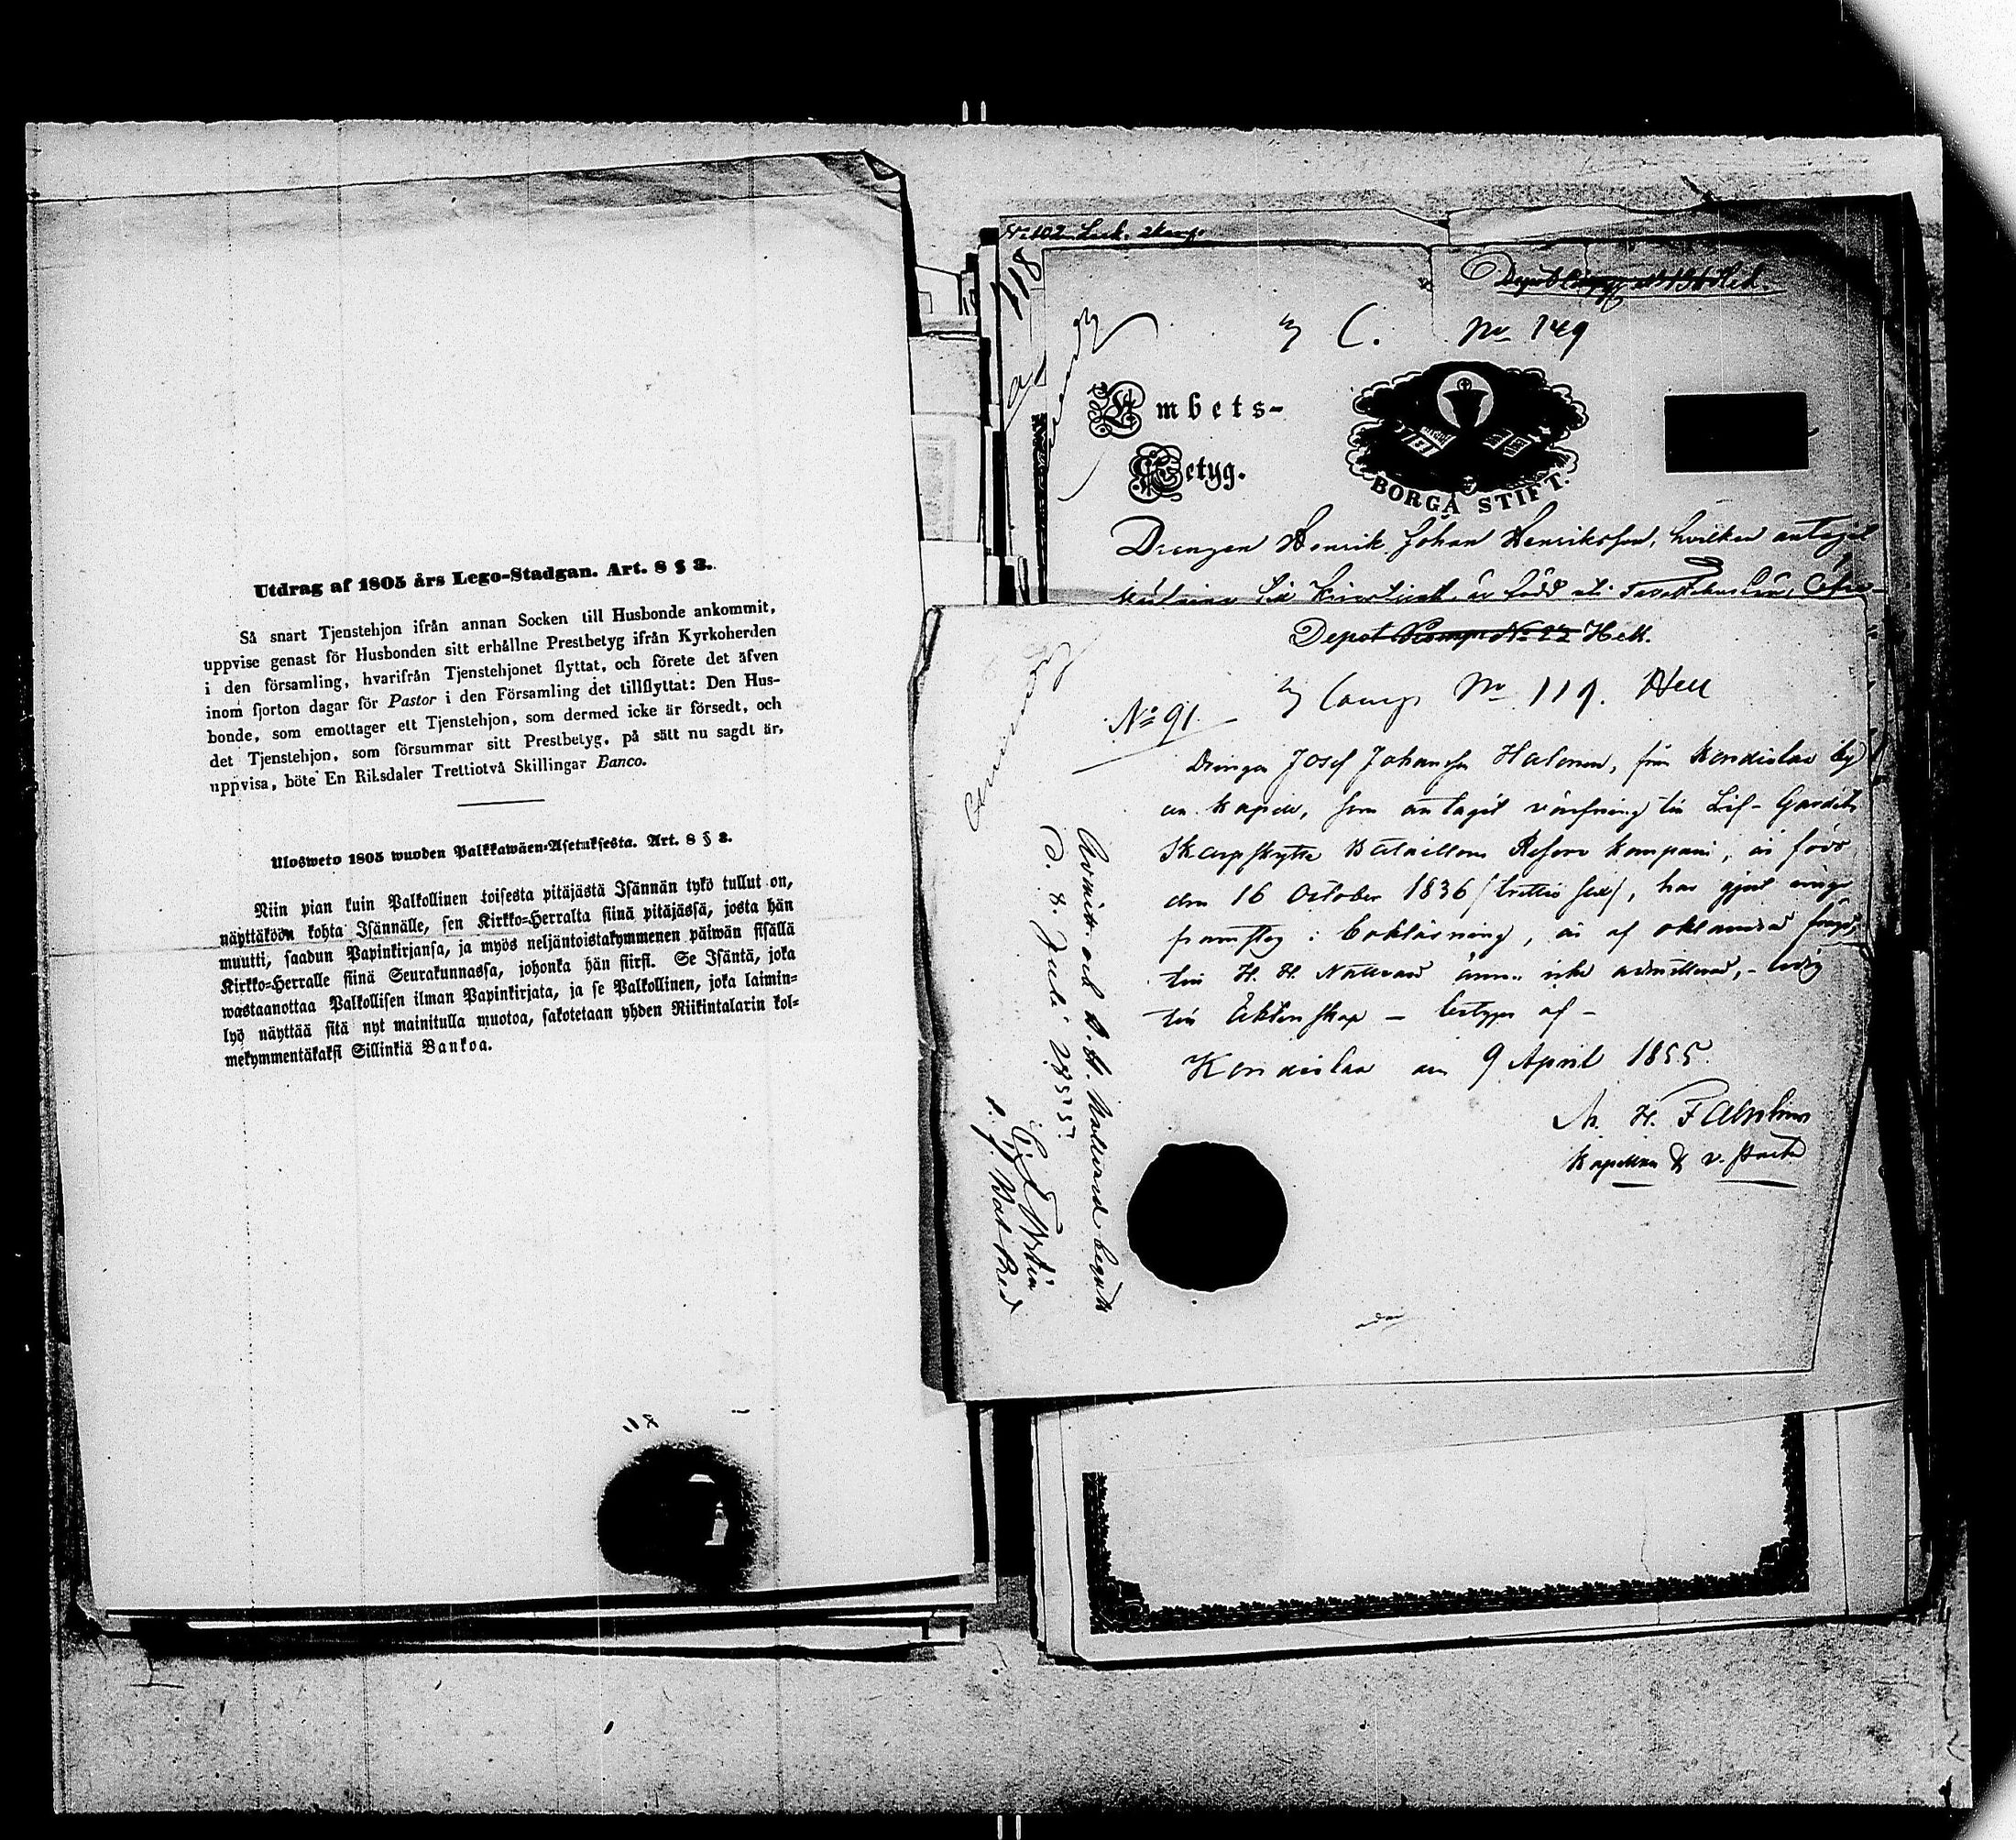 Utdrag af 1805 års Lego-Stadgan. Art. 8 § 3.
Så snart Tjenstehjon ifrån annan Socken till Husbonde ankommit,
uppvise genast för Husbonden sitt erhållne Prestbetyg ifrån Kyrkoherden
i den församling, hvarifrån Tjenstehjonet flyttat, och förete det äfven
inom fjorton dagar för Pastor i den Församling det tillflyttat: Den Hus-
bonde, som emottager ett Tjenstehjon, som dermed icke är försedt, och
det Tjenstehjon, som försummar sitt Prestbetyg, på sätt nu sagdt är,
uppvisa, böte En Riksdaler Trettiotvå Skillingar Banco.
Ulosweto 1805 wuoden Palkkawäen-Asetuksesta. Art. 8 § 3.
Niin pian kuin Palkollinen toisesta pitäjästä Isännän tykö tullut on,
näyttäköön kohta Isännälle, sen Kirkko-Herralta siinä pitäjässä, josta hän
muutti, saadun Papinkirjansa, ja myös neljäntoistakymmenen päiwän sisällä
Kirkko-Herralle siinä Seurakunnassa, johonka hän siirsi. Se Isäntä, joka
wastaanottaa Palkollisen ilman Papinkirjata, ja se Palkollinen, joka laimin-
lyö näyttää sitä nyt mainitulla muotoa, sakotetaan yhden Riikintalarin kol-
mekymmentäkaksi Sillinkiä Bankoa.
N:o 102
118
C. No 149
Embets-
Betyg.
BORGÅ STIFT.
Drengen Henrik Johan Henriksson, hvilken antagit
är född uti
Depot Komp. No 22 Hell.
Comp No 119. Hell
No 91.
Drengen Josef Johansson Halonen, från Kondislax by
och Kapell, som antagit värfning till Lif-Gardets
Skarpskytte Bataillons Reserv Kompani, är född
den 16 October 1836 (trettio sex), har gjort ringa
framsteg i boklärning, är af oklandrad frejd,
till H. H. Nattvard ännu icke admitterad, - ledig
till Äktenskap - betygar af -
Kondislax den 9 April 1855.
H.
Kapellan & v. Pastor
och H. H. Nattvard begått
d. 8. Juli 1855.